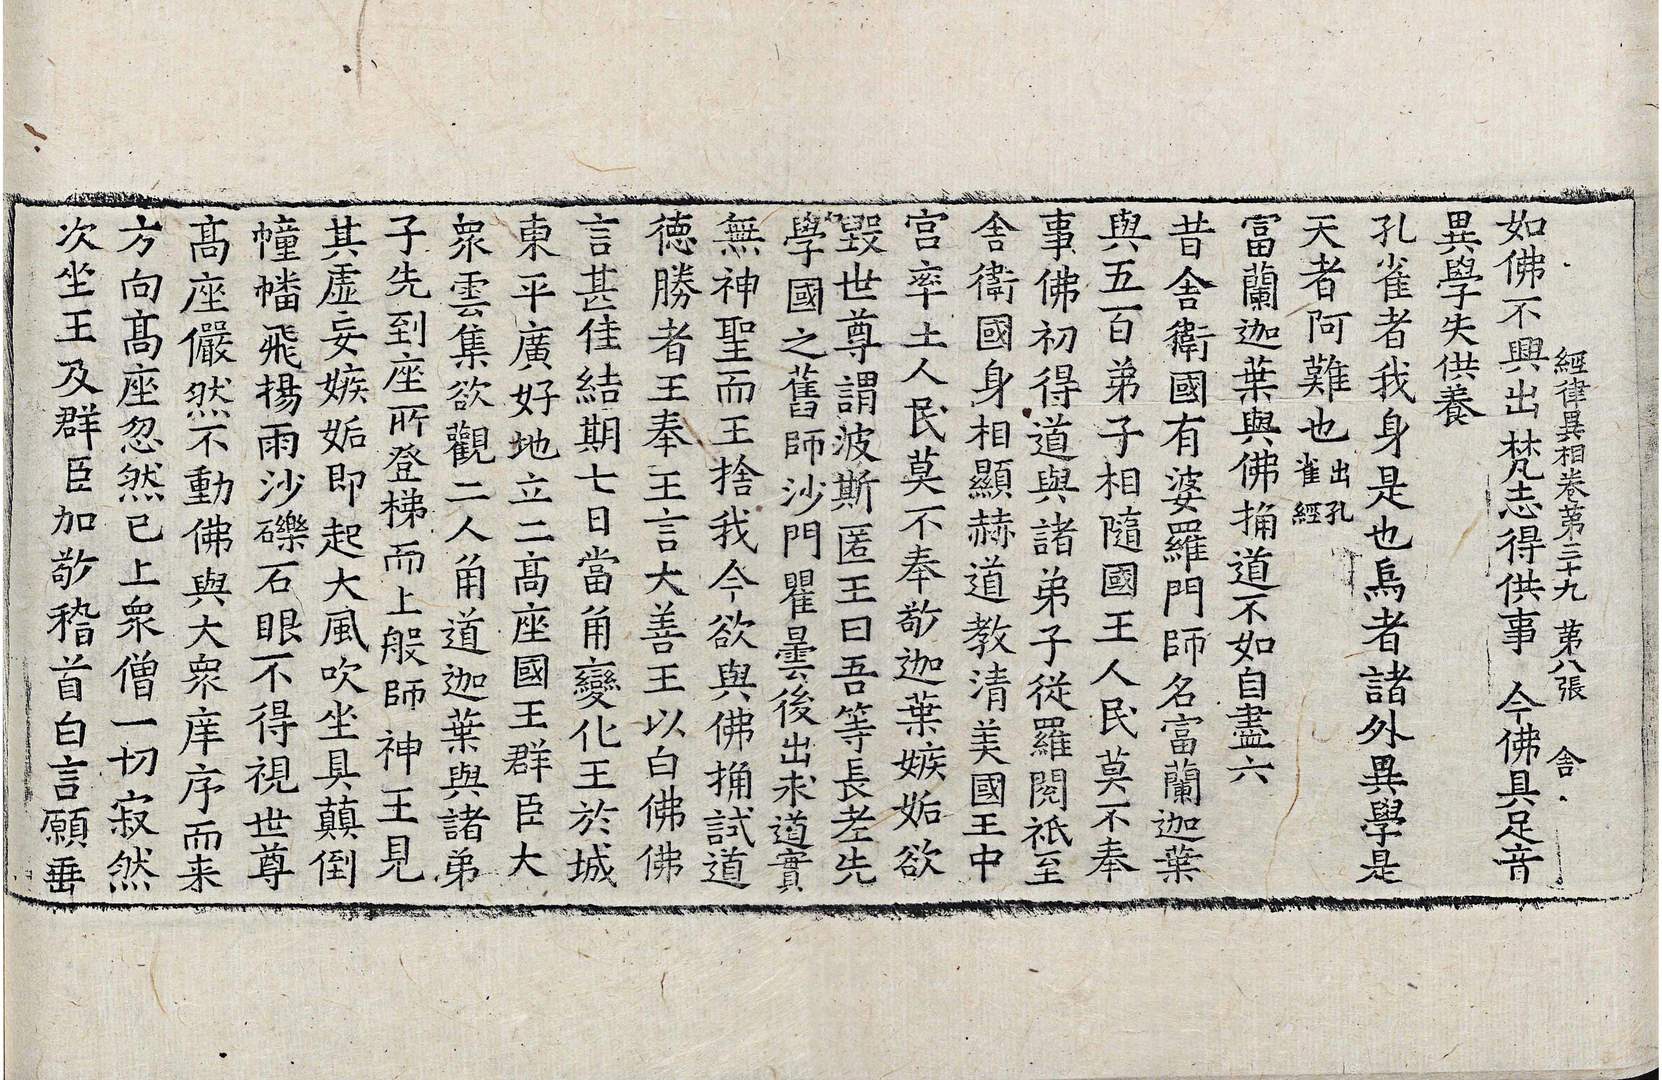 經律異相卷第三十九 第八張 舍
如佛不興出梵志得供事 今佛具足音
異學失供養
孔雀者我身是也烏者諸外異學是
天者阿難也出孔雀經
富蘭迦葉與佛捔道不如自盡六
昔舍衛國有婆羅門師名富蘭迦葉
與五百弟子相隨國王人民莫不奉
事佛初得道與諸弟子從羅閱祇至
舍衛國身相顯赫道教清美國王中
宮率土人民莫不奉敬迦葉嫉妬欲
毀世尊謂波斯匿王曰吾等長老先
學國之舊師沙門瞿曇後出求道實
無神聖而王捨我今欲與佛捔試道
德勝者王奉王言大善王以白佛佛
言甚佳結期七日當角變化王於城
東平廣好地立二髙座國王群臣大
衆雲集欲觀二人角道迦葉與諸弟
子先到座所登梯而上般師神王見
其虛妄嫉妬即起大風吹坐具顛倒
幢幡飛揚雨沙礫石眼不得視世尊
髙座儼然不動佛與大衆庠序而来
方向髙座忽然已上衆僧一切寂然
次坐王及群臣加敬稽首白言願垂